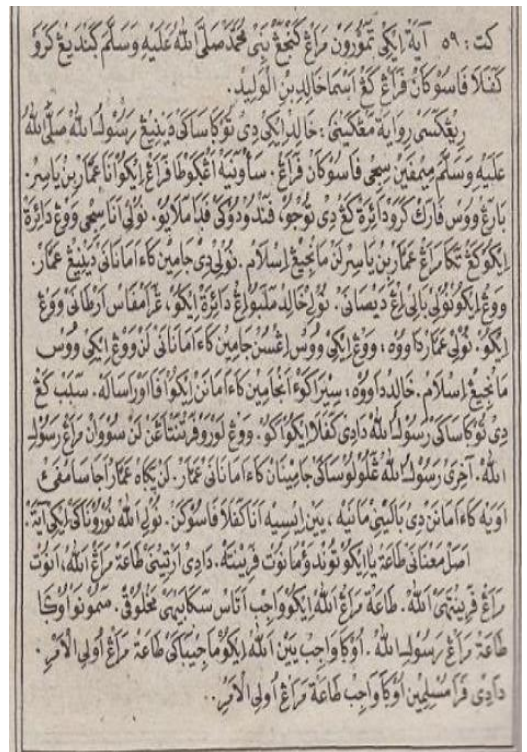 كت : ٥٩ آية إيكي تمورون مراڠ كنجڠ نبي محمد صلى الله عليه وسلم ڮنديڠ كرو
كفلا فاسوكان فراڠ كڠ اسما خالد بن الوليد.
ريڠكسى رواية مڠكيني : خالد إيكي دي توكاساكى دينيڠ رسول الله صلى الله
عليه وسلم ميمفين سجى فاسوكان فراڠ. سأونيه أڠڮوطا فراڠ إيكو أنا عمار بن ياسر.
بارڠ ووس فارك كرو دائرة كڠ دي توجو، فندودوكى فدا ملايو. نولى أنا سجى ووڠ دائرة
إيكو كڠ تكا مراڠ عمار بن ياسر لن مانجيڠ إسلام. نولى دي جامين كاءامانانى دينيڠ عمار.
ووڠ إيكو نولى بالى إڠ ديصانى. نولى خالد ملبو إڠ دائرة إيكو، ڠرامفاس أرطانى ووڠ
إيكو. نولى عمار داووه : ووڠ إيكي ووس إڠسن جامين كاءامانانى لن ووڠ إيكي ووس
مانجيڠ إسلام. خالد داووه : سيرا كوءا نجامين كاءامانن إيكو افا اورا سالاه. سبب كڠ
دي توكاساكى رسول الله دادى كفلا إيكو اكو. ووڠ لورو فربنتاڠن لن سووان مراڠ رسول
الله. آخرى رسول الله ڠلولوساكى جامينان كاءامانانى عمار. لن نڮاه عمار أجا سامفى
اويه كاءامانن دي بالينى مانيه، بين إيسيه أنا كفلا فاسوكن. نولى الله نورونكى إيكي آية.
اصل معنانى طاعة يا إيكو توندو مانوت فرينتاه. دادى ارتينى طاعة مراڠ الله، انوت
مراڠ فرينتهى الله. طاعة مراڠ الله إيكو واجب أتاس سكابيهى مخلوق. سمونو اوڮا
طاعة مراڠ رسول الله. اوڮا واجب بين الله إيكو ماجيباكى طاعة مراڠ أولى الأمر.
دادى فرا مسلمين اوڮا واجب طاعة مراڠ أولى الأمر..